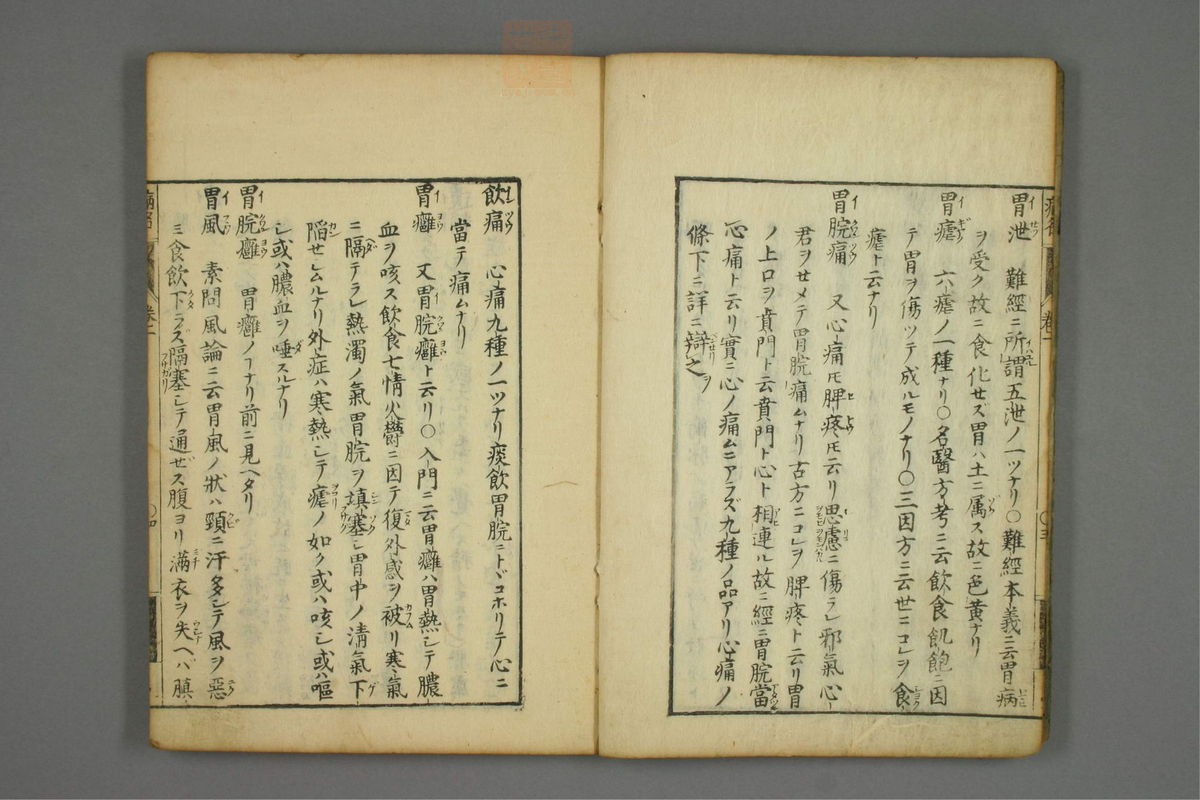 胃泄 難經ニ所謂五泄ノ一ツナリ〇難經本義ニ云胃病
ヲ受ク故ニ食化セズ胃ハ土ニ属ス故ニ色黄ナリ
胃瘧 六瘧ノ一種ナリ〇名醫方考ニ云飲食飢飽ニ因
テ胃ヲ傷ツテ成ルモノナリ〇三因方ニ云世ニコレヲ食
瘧ト云ナリ
胃脘痛 又心痛トモ脾疼トモ云リ思慮ニ傷ラレ邪氣心
君ヲせメテ胃脘痛ムナリ古方ニコレヲ脾疼ト云リ胃
ノ上口ヲ賁門ト云賁門ト心ト相連ル故ニ經ニ胃脘當
心痛ト云リ實ニ心ノ痛ムニアラズ九種ノ品アリ心痛ノ
條下ニ詳ニ辯之ヲ
飲痛 心痛九種ノ一ツナリ痰飲胃脘ニトドコホリテ心ニ
當テ痛ムナリ
胃癰 又胃脘癰ト云リ〇入門ニ云胃癰ハ胃熱シテ膿
血ヲ咳ス飲食七情火欝ニ因テ復外感ヲ被リ寒氣
ニ隔テラレ熱濁ノ氣胃脘ヲ填塞シ胃中ノ清氣下
陷せシムルナリ外症ハ寒熱シテ瘧ノ如ク或ハ咳シ或ハ嘔
シ或ハ膿血ヲ唾スルナリ
胃脘癰 胃癰ノコナリ前ニ見ヘタリ
胃風 素問風論ニ云胃風ノ狀ハ頸ニ汗多シテ風ヲ惡
ミ食飲下ラズ隔塞シテ通ぜス腹ヨリ滿衣ヲ失ヘバ䐜